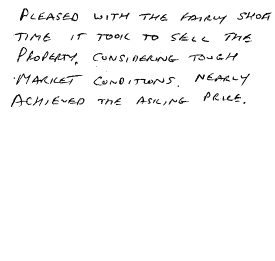 PLEASED WITH THE FAIRLY SHORT
TIME IT TOOK TO SELL THE
PROPERTY. CONSIDERING TOUGH
MARKET CONDITIONS. NEARLY
ACHIEVED THE ASKING PRICE.